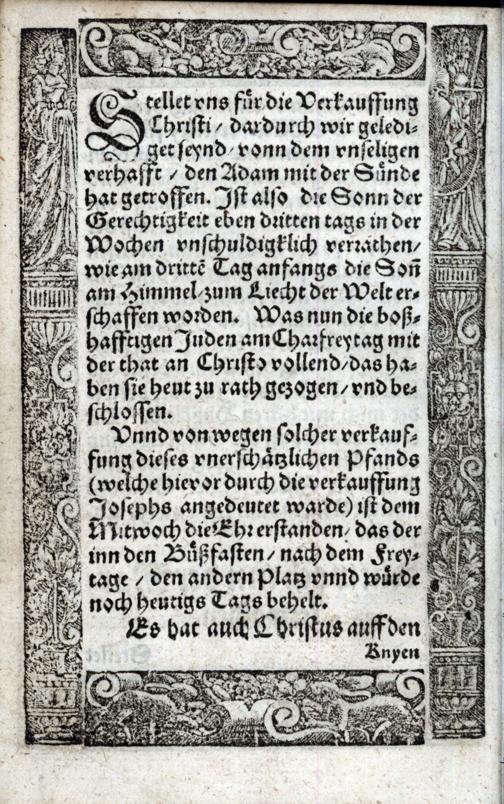 Stellet vns für die Verkauffung
Christi / dardurch wir geledi-
get seynd / vonn dem vnseligen
verhafft / den Adam mit der Sünde
hat getroffen. Ist also die Sonn der
Gerechtigkeit eben dritten tags in der
Wochen vnschuldigklich verrathen /
wie am dritтẽ Tag anfangs die Soñ
am Himmel / zum Liecht der Welt er-
schaffen worden. Was nun die boß-
hafftigen Juden am Charfreytag mit
der that an Christo vollend / das ha-
ben sie heut zu rath gezogen / vnd be-
schlossen.
Vnnd von wegen solcher verkauf-
fung dieses vnerschätzlichen Pfands
(welche hievor durch die verkauffung
Josephs angedeutet warde) ist dem
Mitwoch die Ehr erstanden / das der
inn den Bůßfasten / nach dem Frey-
tage / den andern Platz vnnd würde
noch heutigs Tags behelt.
Es hat auch Christus auff den
Knyen